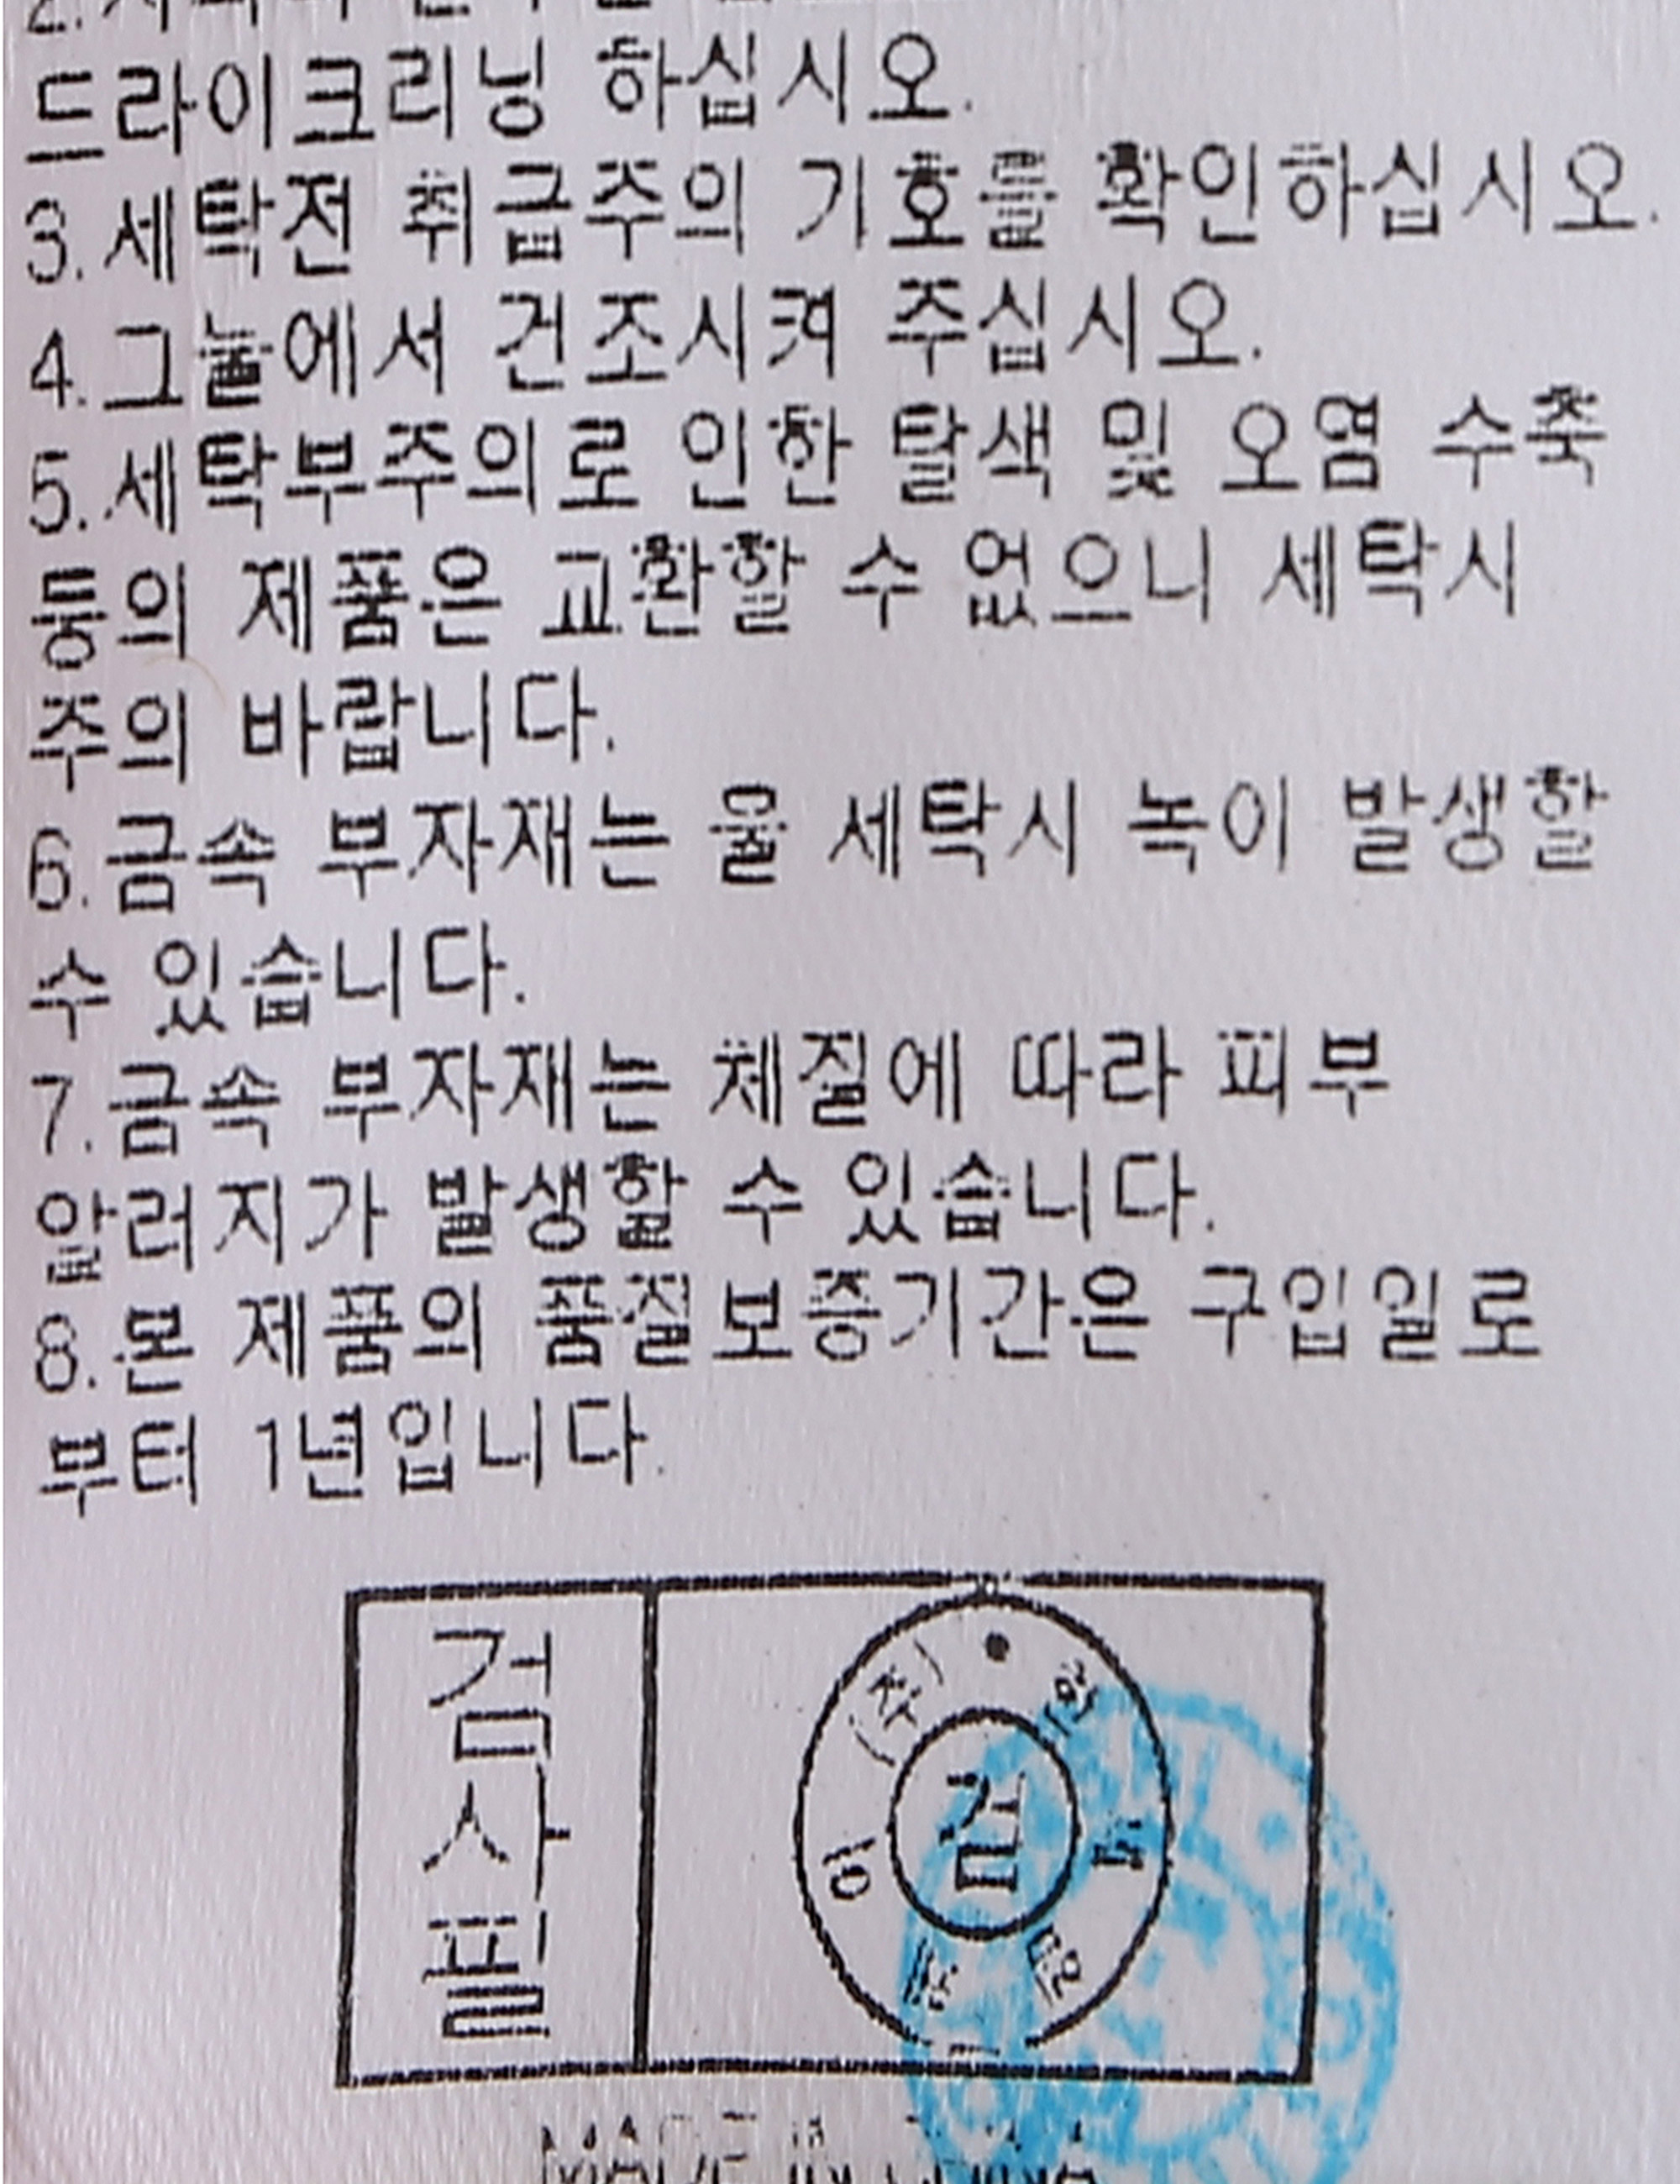 드라이크리닝 하십시오.
3.세탁전 취급주의 기호를 확인하십시오.
4.그늘에서 건조시켜 주십시오.
5.세탁부주의로 인한 탈색 및 오염 수축
등의 제품은 교환할 수 없으니 세탁시
주의 바랍니다.
6.금속 부자재는 울 세탁시 녹이 발생할
수 있습니다.
7.금속 부자재는 체질에 따라 피부
알러지가 발생할 수 있습니다.
8.본 제품의 품질보증기간은 구입일로
부터 1년입니다.
검사필
(주)
검
MADE IN CHINA